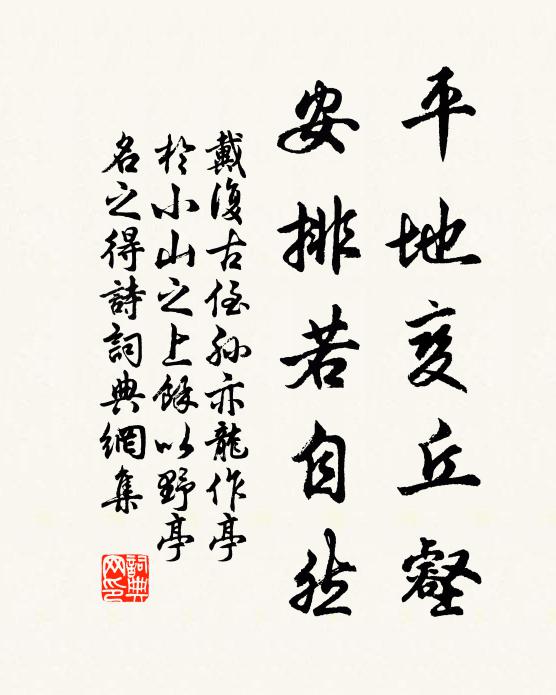 平地变丘壑
安排若自然
戴復古侄孙亦龍作亭
於小山之上餘以野亭
名之得詩詞典網集
詞典網印